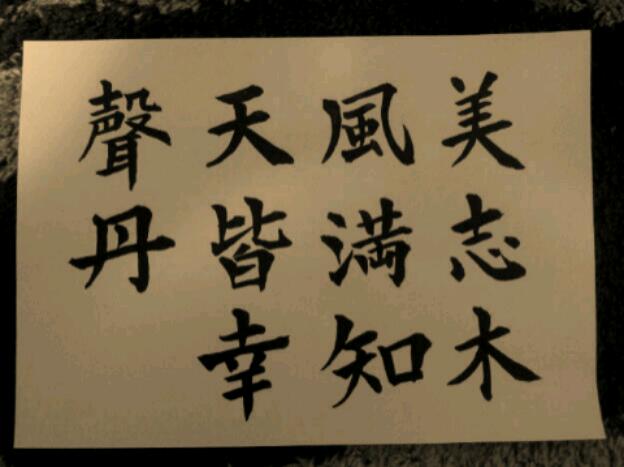 美志木
風満知
天皆幸
聲丹